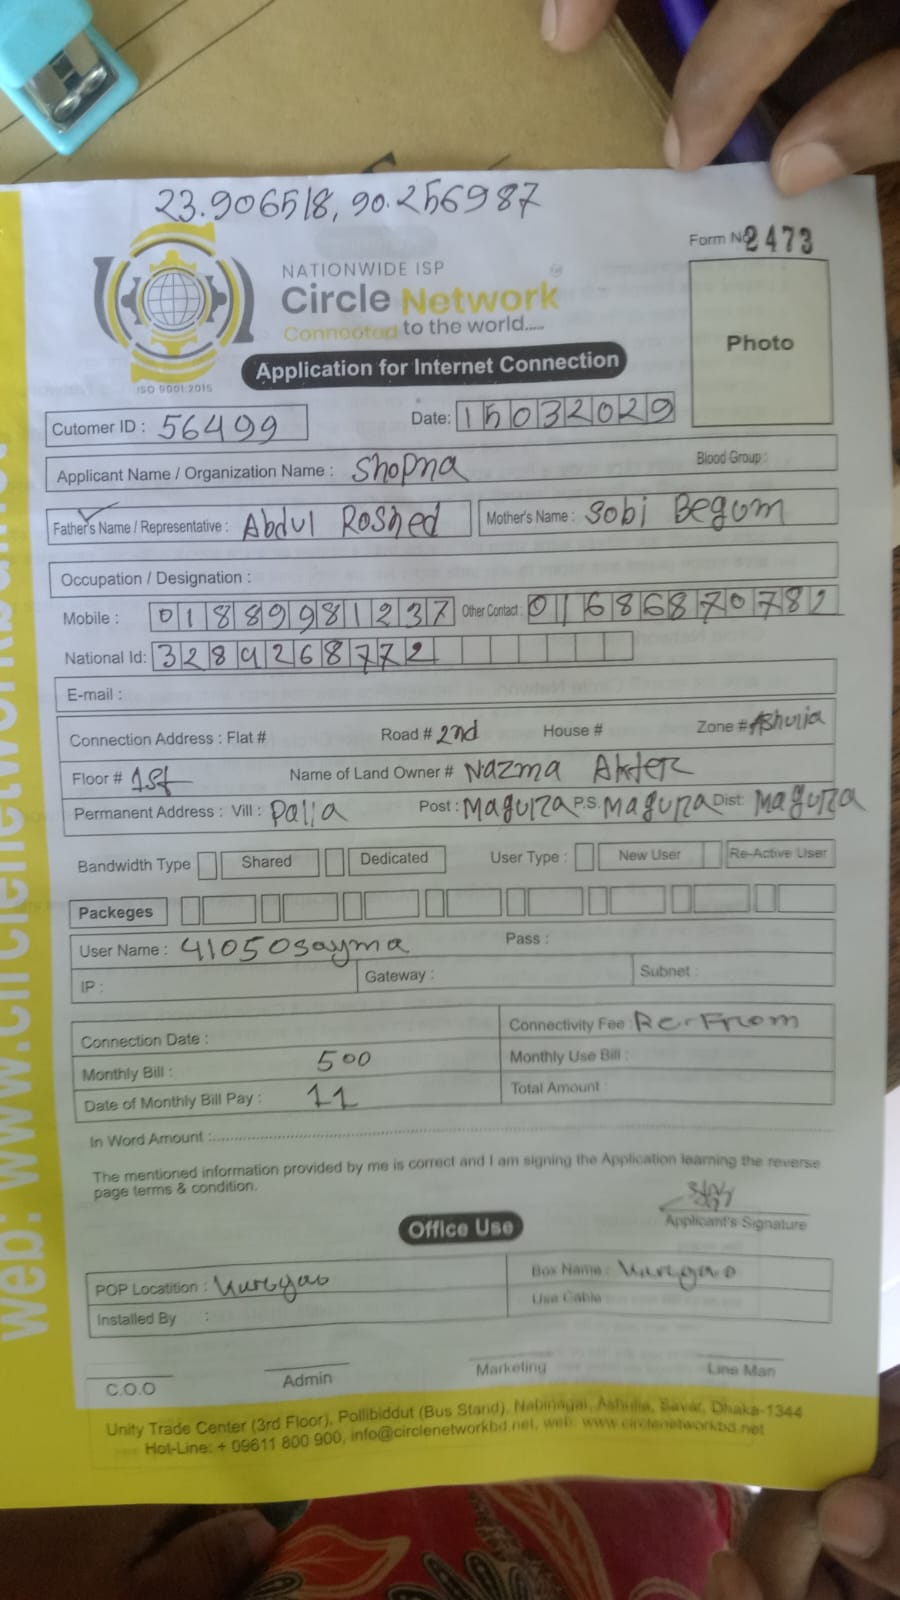 23.906518, 90.256987
Form No 2473
NATIONWIDE ISP
Circle Network
Connected to the world.....
ISO 9001:2015
Application for Internet Connection
Photo
Cutomer ID : 56499
Date: 15032029
Applicant Name / Organization Name : Shopna
Blood Group :
Father's Name / Representative : Abdul Roshed
Mother's Name : Sobi Begum
Occupation / Designation :
Mobile : 01889981237 Other Contact : 01686870782
National Id: 3289268772
E-mail :
Connection Address : Flat # Road # 2nd House # Zone # Ashulia
Floor # 1st Name of Land Owner # Nazma Akter
Permanent Address : Vill : Palla Post : Magura P.S. Magura Dist: Magura
Bandwidth Type Shared Dedicated User Type : New User Re-Active User
Packeges
User Name : 41050sayma Pass :
IP : Gateway : Subnet :
Connection Date : Connectivity Fee : Re-From
Monthly Bill : 500 Monthly Use Bill :
Date of Monthly Bill Pay : 11 Total Amount :
In Word Amount :
The mentioned information provided by me is correct and I am signing the Application learning the reverse
page terms & condition.
Applicant's Signature
Office Use
POP Locatition : Box Name :
Installed By : Use Cable
C.O.O Admin Marketing Line Man
Unity Trade Center (3rd Floor), Pollibiddut (Bus Stand), Nabinagar, Ashulia, Savar, Dhaka-1344
Hot-Line: + 09611 800 900, info@circlenetworkbd.net, web: www.circlenetworkbd.net
web: www.circlenetworkbd.net